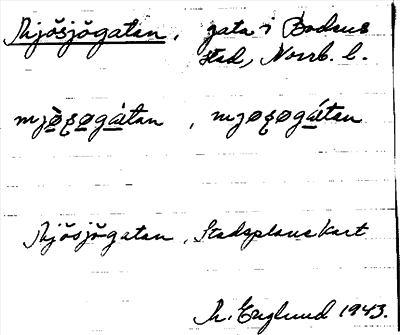 Mjösjögatan, gata i Bodens
stad, Norrb. l.
mjø̀ȿøgátan, mjøȿøgátan
Mjösjögatan, Stadsplanekart
Th. Englund 1943.